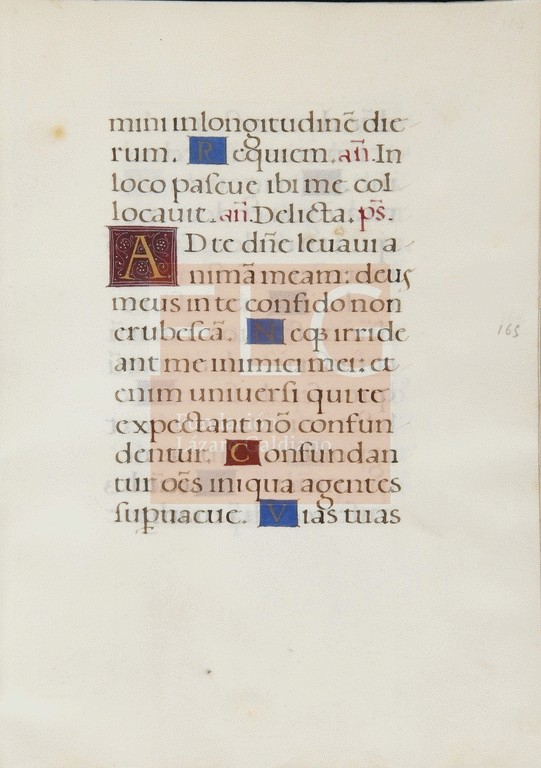 mini in longitudinē die
rum. Requiem. añ. In
loco paſcue ibi me col
locauit. añ. Delicta. pš.
AD te dñe leuaui a
nimā meam: deus
meus in te confido non
erubeſcā. Neqȝ irride
ant me inimici mei: et
enim uniuerſi qui te
expectant nō confun
dentur. Confundan
tur oēs iniqua agentes
ſuꝑuacue. Vias tuas
165
FLG
Fundación
Lázaro Galdiano